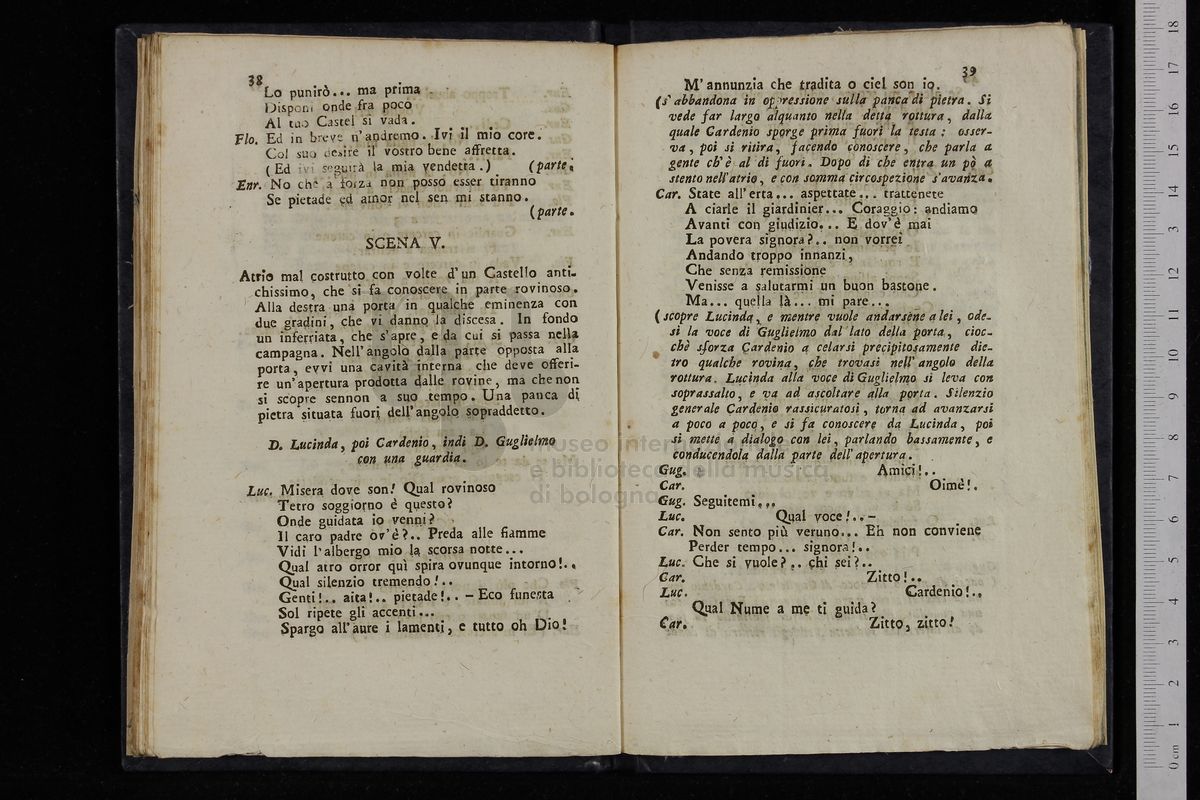 38
Lo punirò... ma prima
Disponi onde fra poco
Al tuo Castel si vada.
Flo. Ed in breve n'andremo. Ivi il mio core.
Col suo desire il vostro bene affretta.
(Ed ivi seguirà la mia vendetta.) (parte.
Enr. No che a forza non posso esser tiranno
Se pietade ed amor nel sen mi stanno.
(parte.
SCENA V.
Atrio mal costrutto con volte d'un Castello anti-
chissimo, che si fa conoscere in parte rovinoso.
Alla destra una porta in qualche eminenza con
due gradini, che vi danno la discesa. In fondo
un inferriata, che s'apre, e da cui si passa nella
campagna. Nell'angolo dalla parte opposta alla
porta, evvi una cavità interna che deve offeri-
re un'apertura prodotta dalle rovine, ma che non
si scopre sennon a suo tempo. Una panca di
pietra situata fuori dell'angolo sopraddetto.
D. Lucinda, poi Cardenio, indi D. Guglielmo
con una guardia.
Luc. Misera dove son! Qual rovinoso
Tetro soggiorno è questo?
Onde guidata io venni?
Il caro padre ov'è?.. Preda alle fiamme
Vidi l'albergo mio la scorsa notte...
Qual atro orror quì spira ovunque intorno!..
Qual silenzio tremendo!..
Genti!.. aita!.. pietade!.. - Eco funesta
Sol ripete gli accenti...
Spargo all'aure i lamenti, e tutto oh Dio!
39
M'annunzia che tradita o ciel son io.
(s'abbandona in oppressione sulla panca di pietra. Si
vede far largo alquanto nella detta rottura, dalla
quale Cardenio sporge prima fuori la testa: osser-
va, poi si ritira, facendo conoscere, che parla a
gente ch'è al di fuori. Dopo di che entra un pò a
stento nell'atrio, e con somma circospezione s'avanza.
Car. State all'erta... aspettate... trattenete
A ciarle il giardinier... Coraggio: andiamo
Avanti con giudizio... E dov'è mai
La povera signora?.. non vorrei
Andando troppo innanzi,
Che senza remissione
Venisse a salutarmi un buon bastone.
Ma... quella là... mi pare...
(scopre Lucinda, e mentre vuole andarsene a lei, ode-
si la voce di Guglielmo dal lato della porta, cioc-
chè sforza Cardenio a celarsi precipitosamente die-
tro qualche rovina, che trovasi nell'angolo della
rottura. Lucinda alla voce di Guglielmo si leva con
soprassalto, e va ad ascoltare alla porta. Silenzio
generale Cardenio rassicuratosi, torna ad avanzarsi
a poco a poco, e si fa conoscere da Lucinda, poi
si mette a dialogo con lei, parlando bassamente, e
conducendola dalla parte dell'apertura.
Gug. Amici!..
Car. Oimè!.
Gug. Seguitemi...
Luc. Qual voce!.. -
Car. Non sento più veruno... Eh non conviene
Perder tempo... signora!..
Luc. Che si vuole?.. chi sei?..
Car. Zitto!..
Luc. Cardenio!..
Qual Nume a me ti guida?
Car. Zitto, zitto!
museo internazionale
e biblioteca della musica
di bologna
0 cm 1 2 3 4 5 6 7 8 9 10 11 12 13 14 15 16 17 18